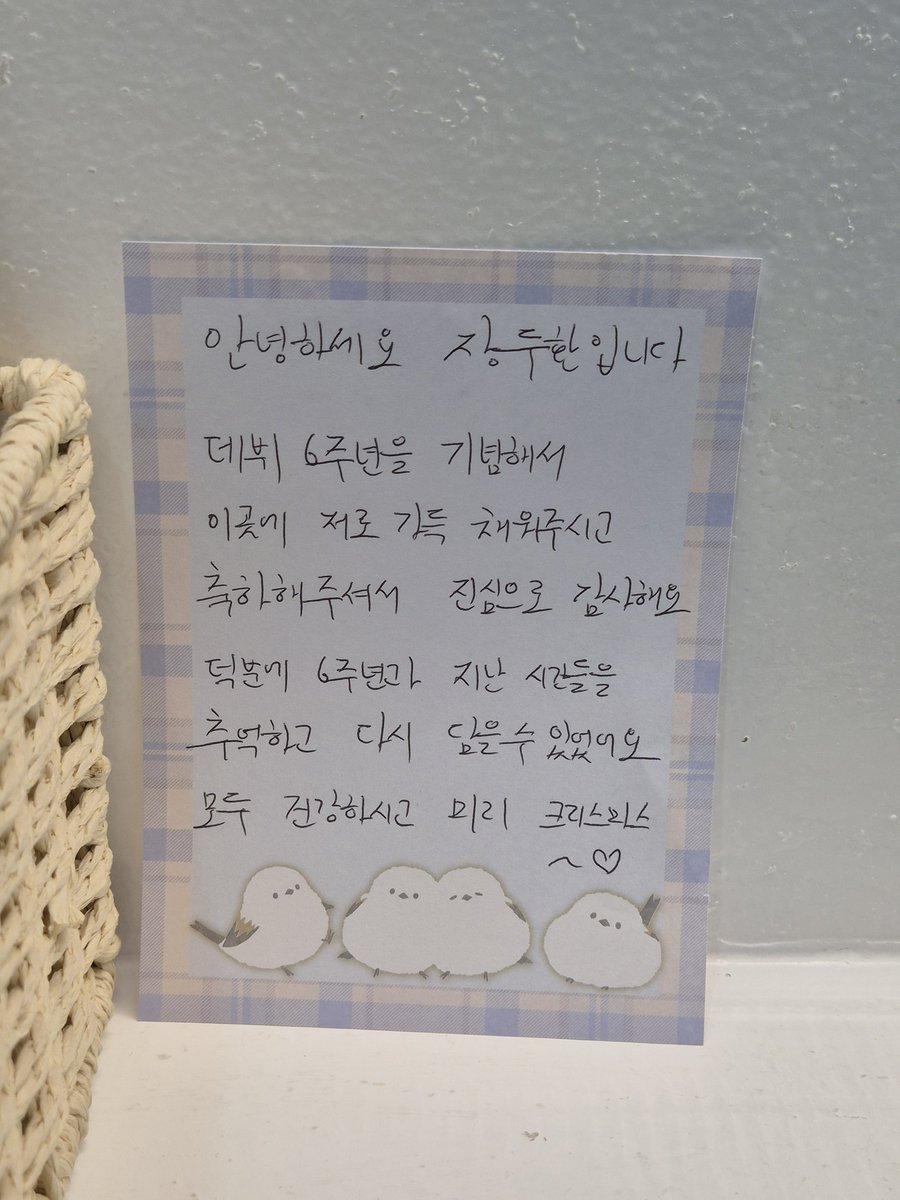 안녕하세요 장두환입니다
데뷔 6주년을 기념해서
이곳에 저로 가득 채워주시고
축하해주셔서 진심으로 감사해요
덕분에 6주년과 지난 시간들을
추억하고 다시 담을수 있었어요
모두 건강하시고 미리 크리스마스
~♡